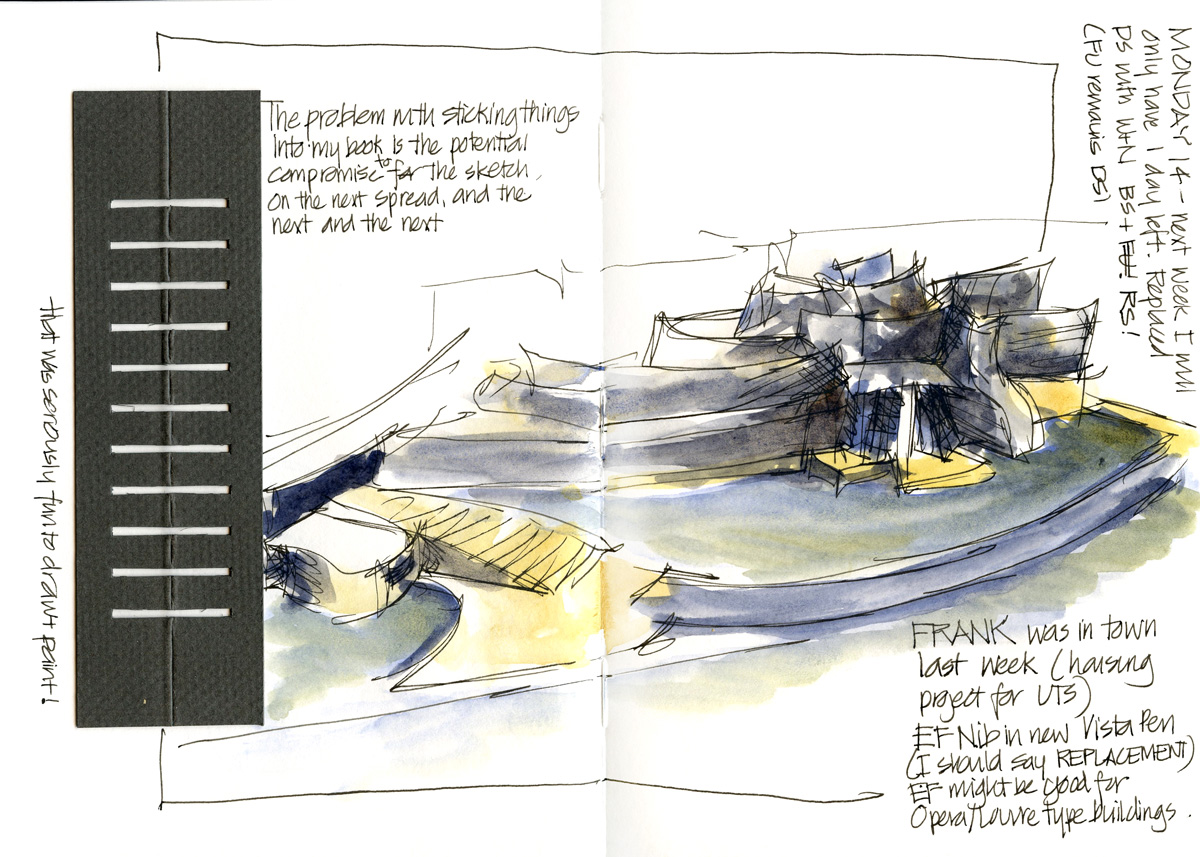 The problem with sticking things
into my book is the potential
compromise to for the sketch,
on the next spread, and the
next and the next
that was seriously fun to draw + paint!
MONDAY 14 - next week I will
only have 1 day left. Replaced
DS with W+N BS + FU. RS!
(FU remains DS)
FRANK was in town
last week (housing
project for UTS)
EF Nib in new Vista Pen
(I should say REPLACEMENT)
EF might be good for
Opera/Louvre type buildings.